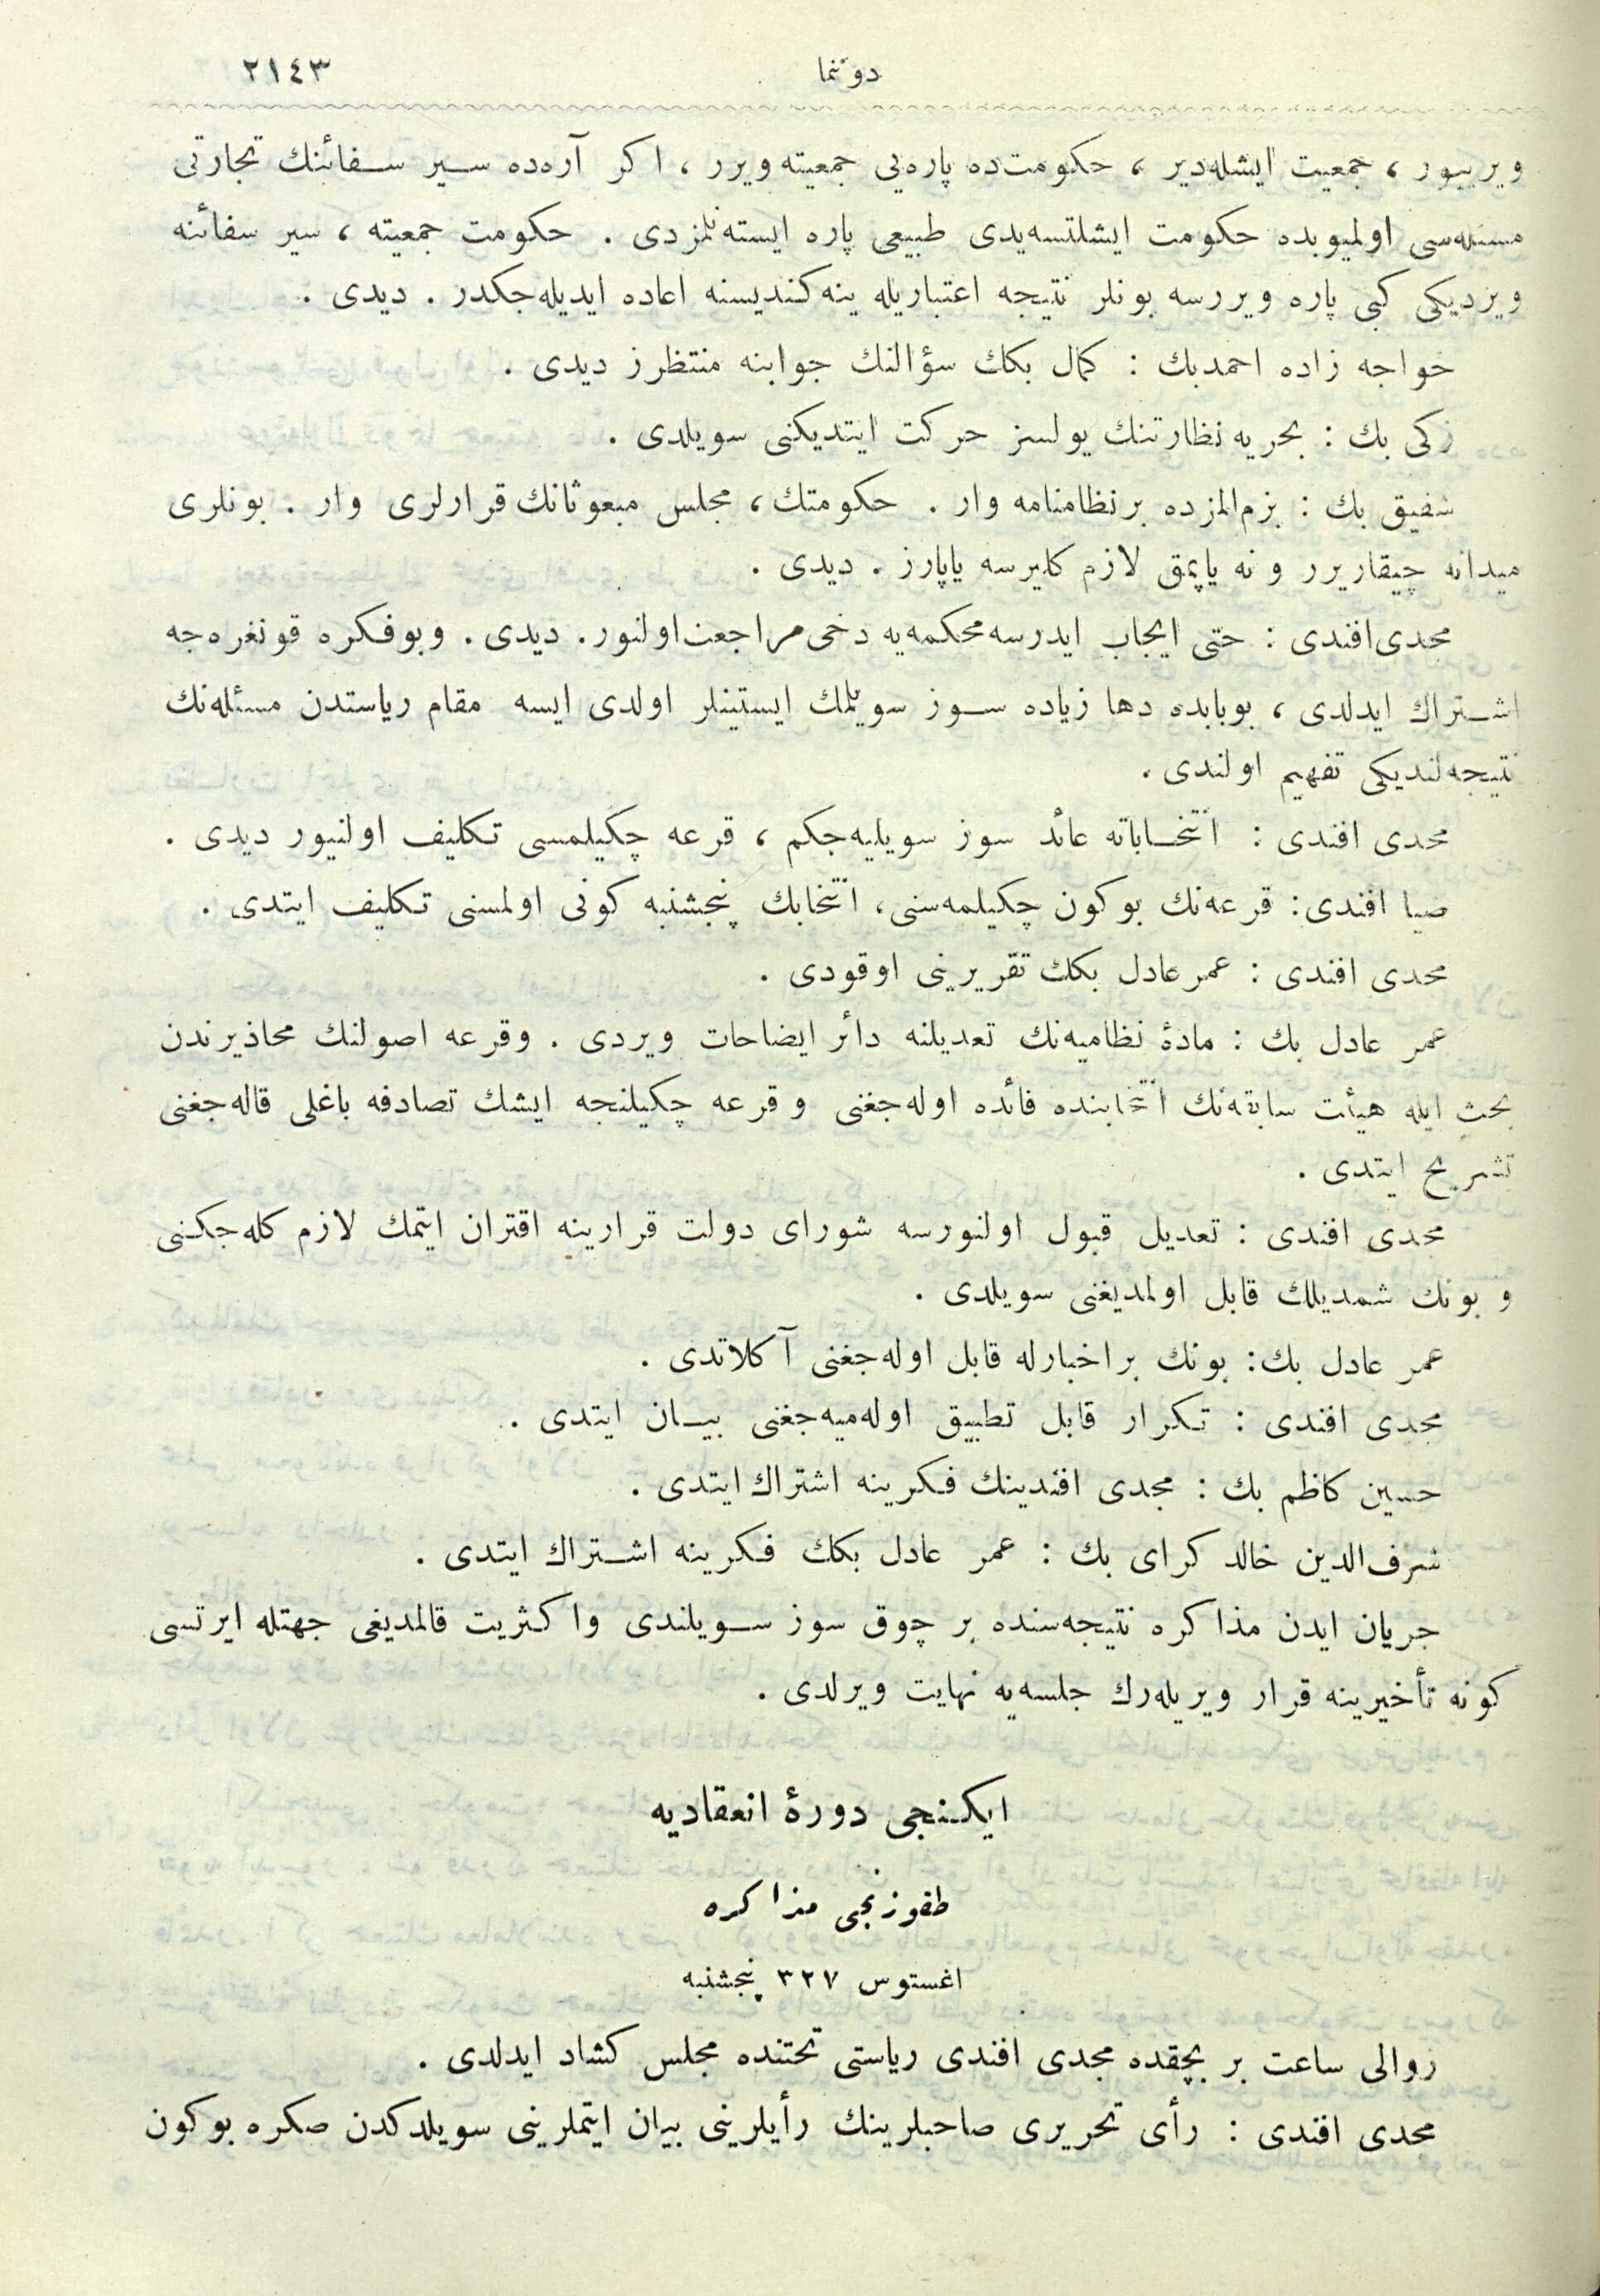 دوننما ٢١٤٣
ویرییور ، جمعیت ایشله‌دیر ، حکومت‌ده پاره‌یی جمعیته ویرر ، اکر آره‌ده سیر سفائنك تجارتی
مسئله‌سی اولمیوبده حکومت ایشلتسه‌یدی طبیعی پاره ایسته‌نلمزدی . حکومت جمعیته ، سیر سفائنه
ویردیکی کبی پاره ویررسه بونلر نتیجه اعتباریله ینه کندیسنه اعاده ایدیله‌جکدر . دیدی .
خواجه زاده احمدبك : کمال بکك سؤالنك جوابنه منتظرز دیدی .
زکی بك : بحریه نظارتنك یولسز حرکت ایتدیکنی سویلدی .
شفیق بك : بزم‌المزده برنظامنامه وار . حکومتك ، مجلس مبعوثانك قرارلری وار . بونلری
میدانه چیقاریرر و نه یاپمق لازم کلیرسه یاپارز . دیدی .
مجدی‌افندی : حتی ایجاب ایدرسه محکمه‌یه دخی مراجعت‌اولنور. دیدی. وبوفکره قونغره‌جه
اشتراك ایدلدی ، بوبابده دها زیاده سوز سویلمك ایستینلر اولدی ایسه مقام ریاستدن مسئله‌نك
نتیجه‌لندیکی تفهیم اولندی .
مجدی افندی : انتخاباته عائد سوز سویلیه‌جکم ، قرعه چکیلمسی تکلیف اولنیور دیدی .
ضیا افندی: قرعه‌نك بوکون چکیلمه‌سنی، انتخابك پنجشنبه کونی اولمسنی تکلیف ایتدی .
مجدی افندی : عمرعادل بکك تقریرینی اوقودی .
عمر عادل بك : مادۀ نظامیه‌نك تعدیلنه دائر ایضاحات ویردی . وقرعه اصولنك محاذیرندن
بحث ایله هیئت سابقه‌نك انتخابنده فائده اوله‌جغنی و قرعه چکیلنجه ایشك تصادفه باغلی قاله‌جغنی
تشریح ایتدی .
مجدی افندی : تعدیل قبول اولنورسه شورای دولت قرارینه اقتران ایتمك لازم کله‌جکنی
و بونك شمدیلك قابل اولمدیغنی سویلدی .
عمر عادل بك: بونك براخبارله قابل اوله‌جغنی آکلاتدی .
مجدی افندی : تکرار قابل تطبیق اوله‌میه‌جغنی بیان ایتدی .
حسین کاظم بك : مجدی افندینك فکرینه اشتراك ایتدی .
شرف‌الدین خالد کرای بك : عمر عادل بکك فکرینه اشتراك ایتدی .
جریان ایدن مذاکره نتیجه‌سنده بر چوق سوز سویلندی واکثریت قالمدیغی جهتله ایرتسی
کونه تأخیرینه قرار ویریله‌رك جلسه‌یه نهایت ویرلدی .
ایکنجی دورۀ انعقادیه
طقوزنجی مذاکره
اغستوس ٣٢٧ پنجشنبه
زوالی ساعت بر بچقده مجدی افندی ریاستی تحتنده مجلس کشاد ایدلدی .
مجدی افندی : رأی تحریری صاحبلرینك رأیلرینی بیان ایتملرینی سویلدکدن صکره بوکون